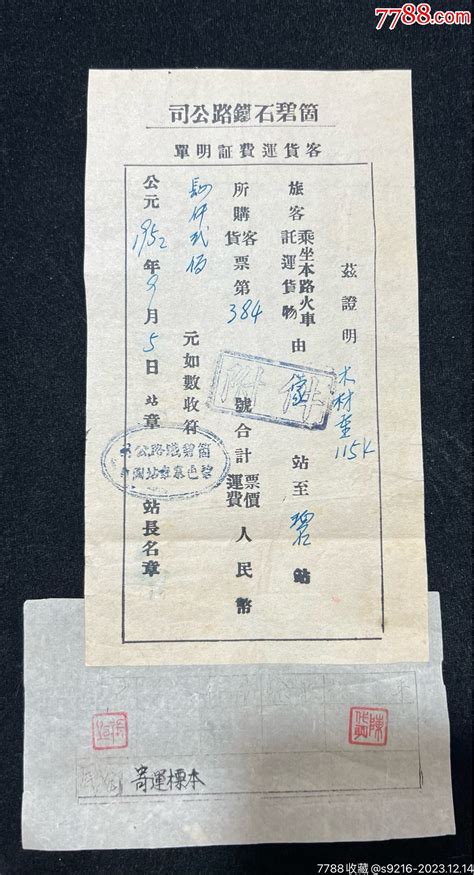 7788.com
箇碧石鐵路公司
客貨運費証明單
茲證明 木材重115K
旅客乘坐本路火車託運貨物由 站至碧站
所購客貨票第384號合計票價運費人民幣
肆仟弍佰元如數收符
公元1952年9月5日站章 站長名章
附件
寄運標本
7788收藏@s9216-2023.12.14